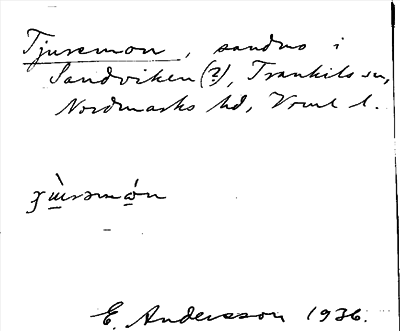 Tjuremon, sandns i
Sandviken (?), Trankils sn,
Nordmarks hd, Vrml l.
E. Andersson 1936.